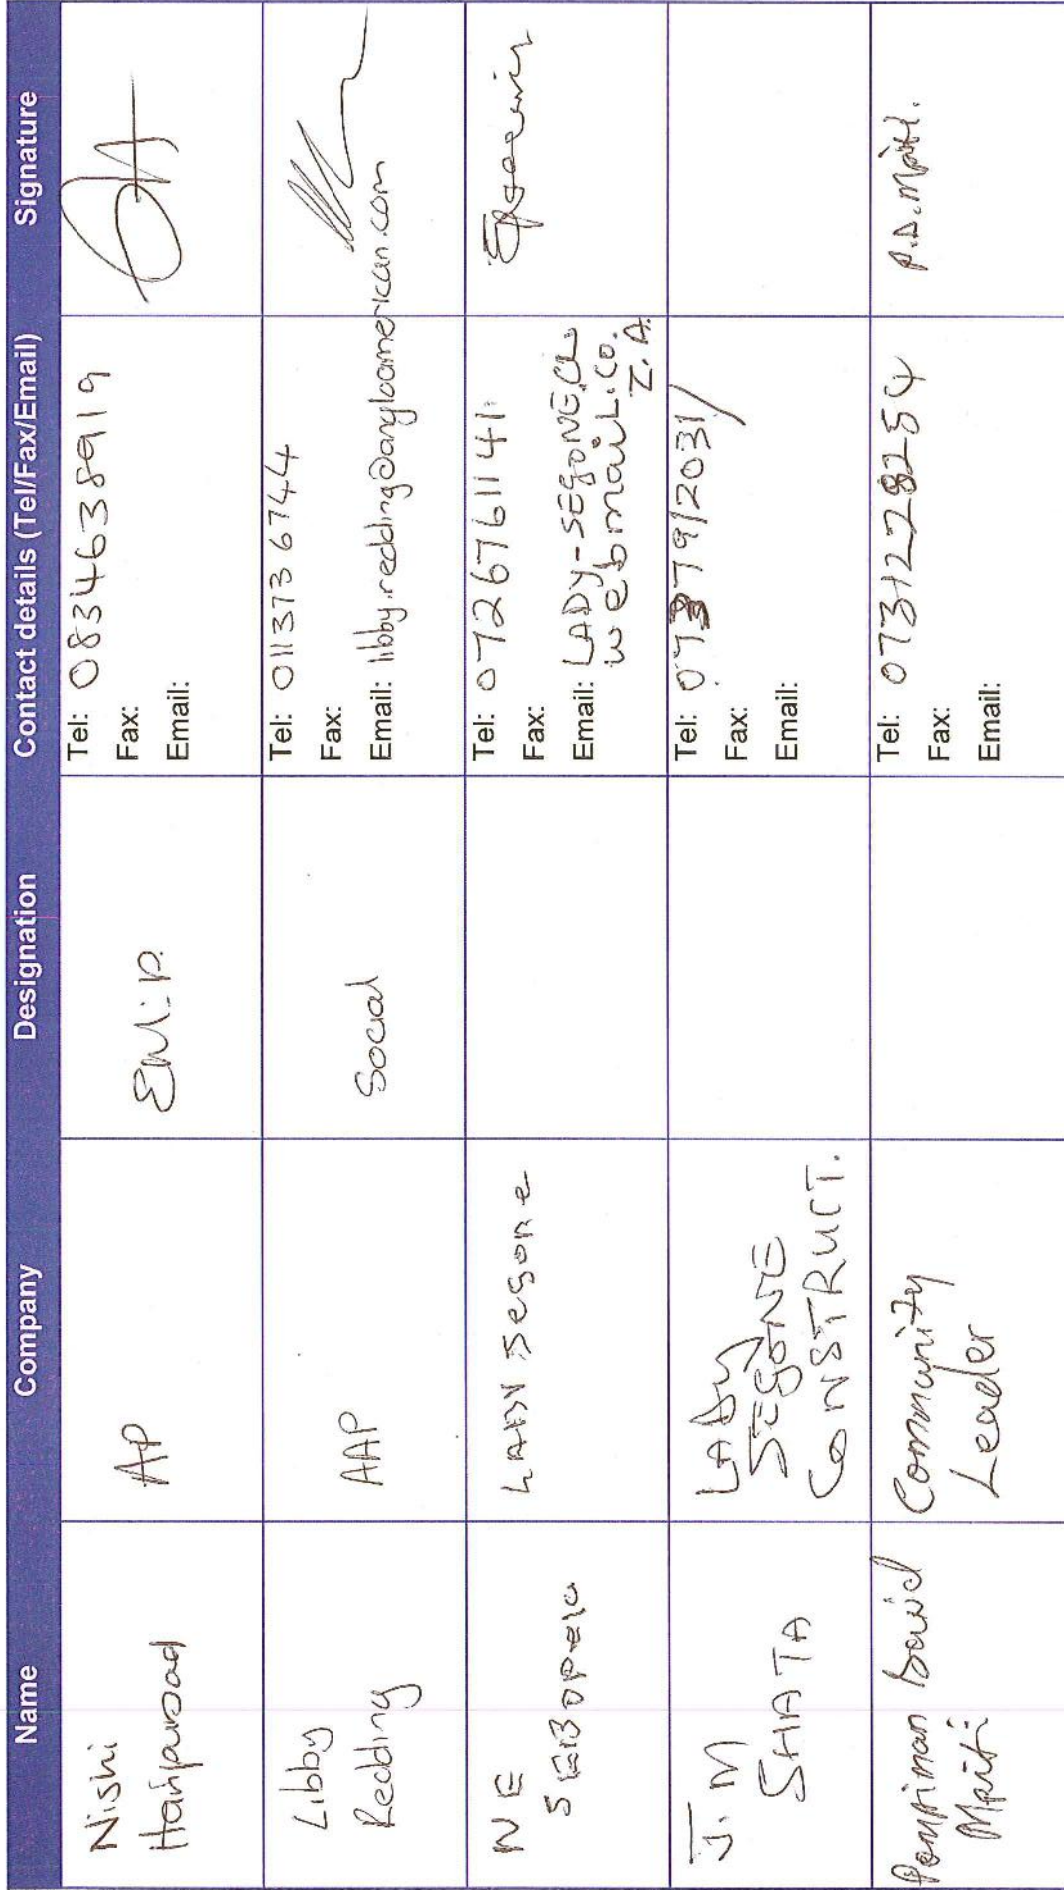 Name Company Designation Contact details (Tel/Fax/Email) Signature
Nishi
Haripursad
AP
Tel: 0834638919
Fax:
Email:
Libby
Redding
AAP
Social
Tel: 011 373 6744
Fax:
Email: libby.redding@angloamerican.com
NE
SEBOPELA
LADY Segone
Tel: 0726761141
Fax:
Email: LADY-SEGONE@
webmail.co.
Z.A.
J.M
SHATA
LADY
SEGONE
CONSTRUCT.
Tel: 0738791203
Fax:
Email:
David
Community
Leader
Tel: 0731228254
Fax:
Email: